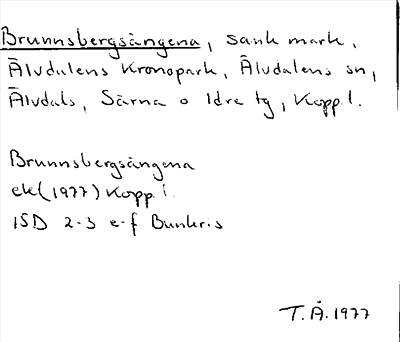 Brunnsbergsängena, sank mark,
Älvdalens Kronopark, Älvdalens sn,
Älvdals, Särna o Idre tg, Kopp.l.
Brunnsbergsängena
ek (1977) Kopp. l.
15D 2-3 e-f Bunkris
T.Å. 1977